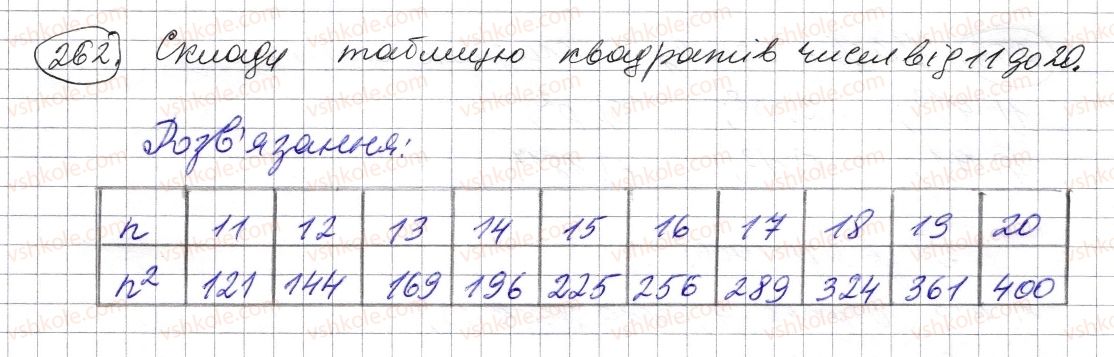 262. Склади таблицю квадратів чисел від 11 до 20.
Розв'язання:
n 11 12 13 14 15 16 17 18 19 20
n² 121 144 169 196 225 256 289 324 361 400